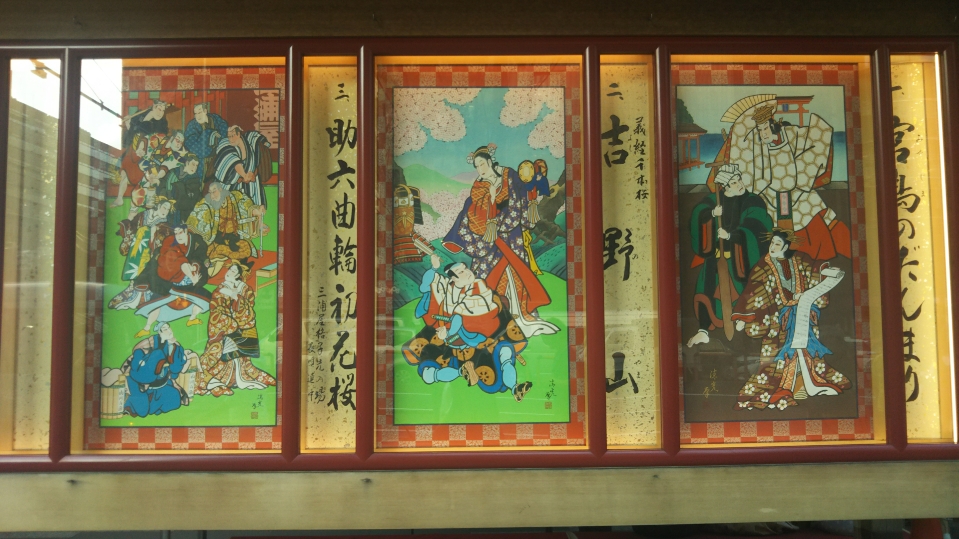 一 宮島のだんまり
義経千本桜
二 吉野山
三 助六曲輪初花桜
三浦屋格子先の場